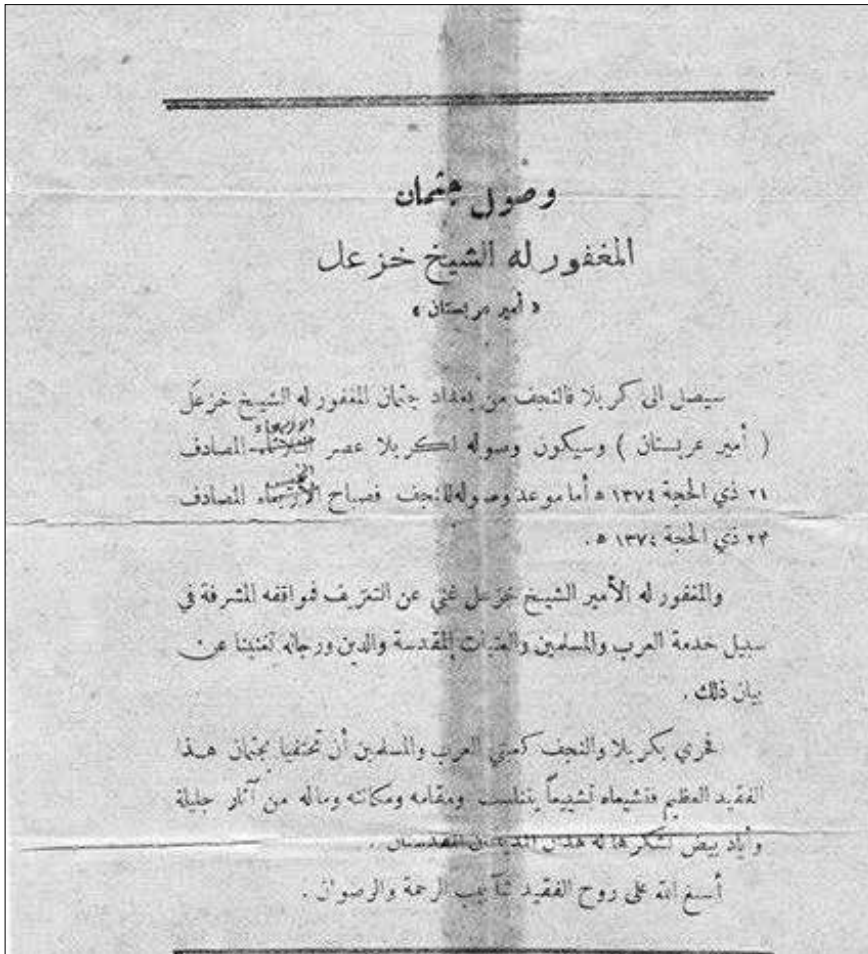 وصول جثمان
المغفور له الشيخ خزعل
« أمير عربستان »
سيصل الى كربلا فالنجف من بغداد جثمان المغفور له الشيخ خزعل
الاربعاء
( أمير عربستان ) وسيكون وصوله لكربلا عصر الثلاثاء المصادف
الخميس
٢١ ذي الحجة ١٣٧٤ ه أما موعد وصوله للنجف فصباح الأربعاء المصادف
٢٣ ذي الحجة ١٣٧٤ ه .
والمغفور له الأمير الشيخ خزعل غني عن التعريف فمواقفه المشرفة في
سبيل خدمة العرب والمسلمين والعتبات المقدسة والدين ورجاله تغنينا عن
بيان ذلك .
فحري بكربلا والنجف كعبتي العرب والمسلمين أن تحتفيا بجثمان هذا
الفقيد العظيم فتشيعاه تشييعاً يتناسب ومقامه ومكانته وماله من آثار جليلة
وأياد بيض تشكرها له هذين المدينتين المقدستين ..
أسبغ الله على روح الفقيد شآبيب الرحمة والرضوان .